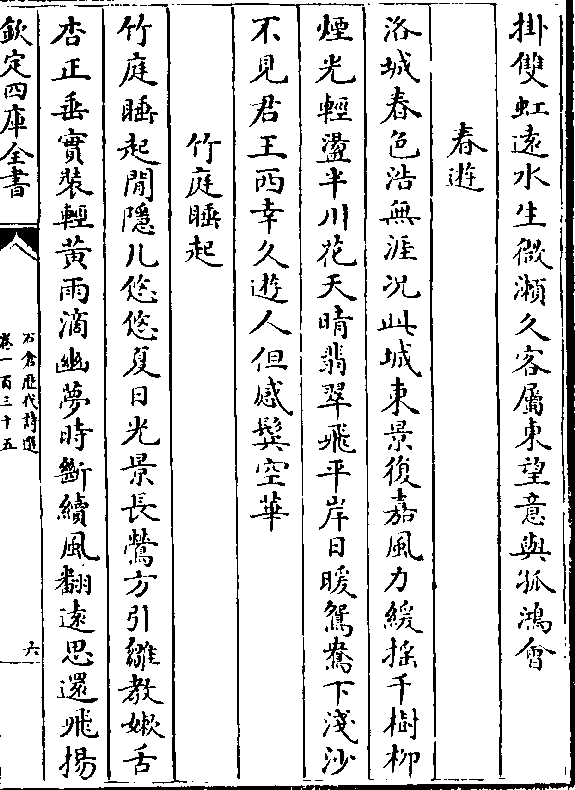 掛雙虹遠水生微瀬久客屬東望意與孤鴻會
春遊
洛城春色浩無涯况此城東景復嘉風力緩揺千樹柳
煙光輕盪半川花天晴翡翠飛平岸日暖鴛鴦下淺沙
不見君王西幸久遊人但感鬢空華
竹庭睡起
竹庭睡起閒隱几悠悠夏日光景長鶯方引雛教嫰舌
杏正垂實裝輕黃雨滴幽夢時斷續風翻遠思還飛揚
欽定四庫全書
石倉歷代詩選
卷一百三十五
六